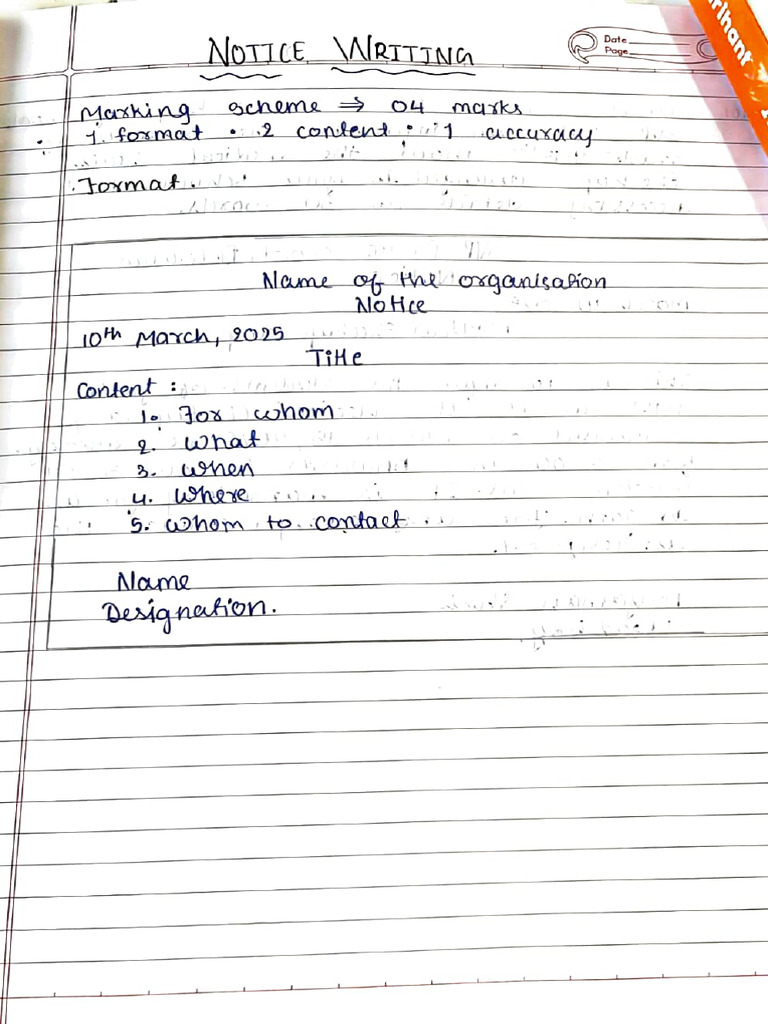 NOTICE WRITING
Date
Page
rihant
Marking scheme ⇒ 04 marks
1 format • 2 content • 1 accuracy
Format.
Name of the organisation
Notice
10th March, 2025
Title
Content :
1. For whom
2. What
3. When
4. Where
5. Whom to contact
Name
Designation.